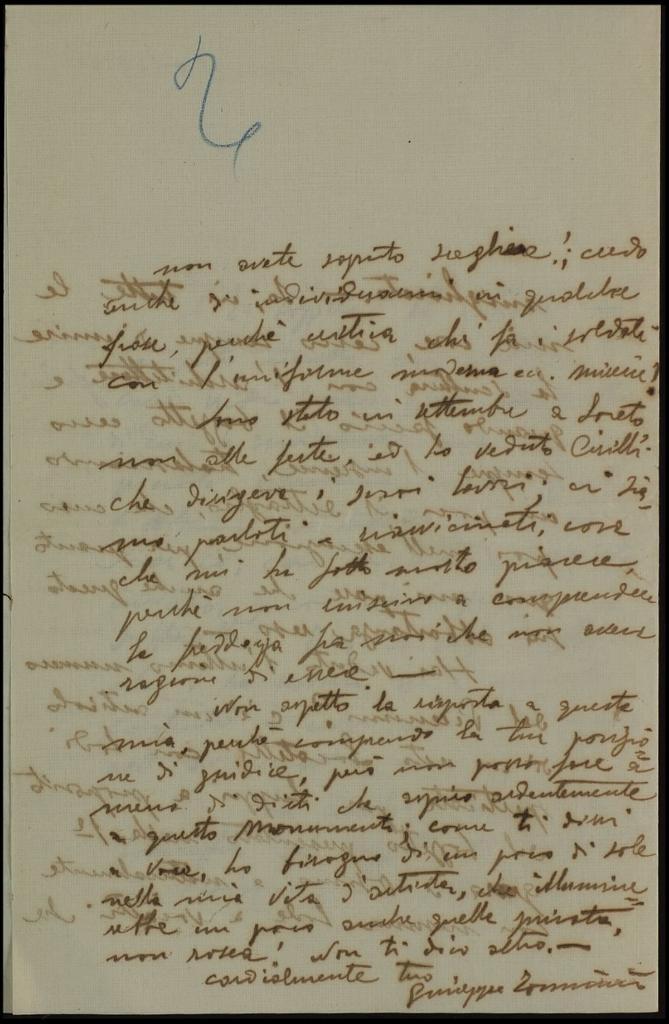 non avete saputo scegliere!; credo
anche di individuarmi in qualche
frase, perchè critica chi fa i soldati
con l'uniforme moderna ecc. miserie!
Sono stato in settembre a Loreto
non alle feste, ed ho veduto Cirilli
che dirigeva i suoi lavori; ci sia=
mo parlati e riavvicinati, cosa
che mi ha fatto molto piacere,
perchè non riuscivo a comprendere
la freddezza fra noi che non aveva
ragione di essere —
Non aspetto la risposta a questa
mia, perchè comprendo la tua posizio
ne di giudice, però non posso fare a
meno di dirti che aspiro ardentemente
a questo Monumento; come ti dissi
a voce, ho bisogno di un poco di sole
nella mia vita d'artista, che illumine=
rebbe un poco anche quella privata,
non rosea! Non ti dico altro.—
cordialmente tuo
Giuseppe